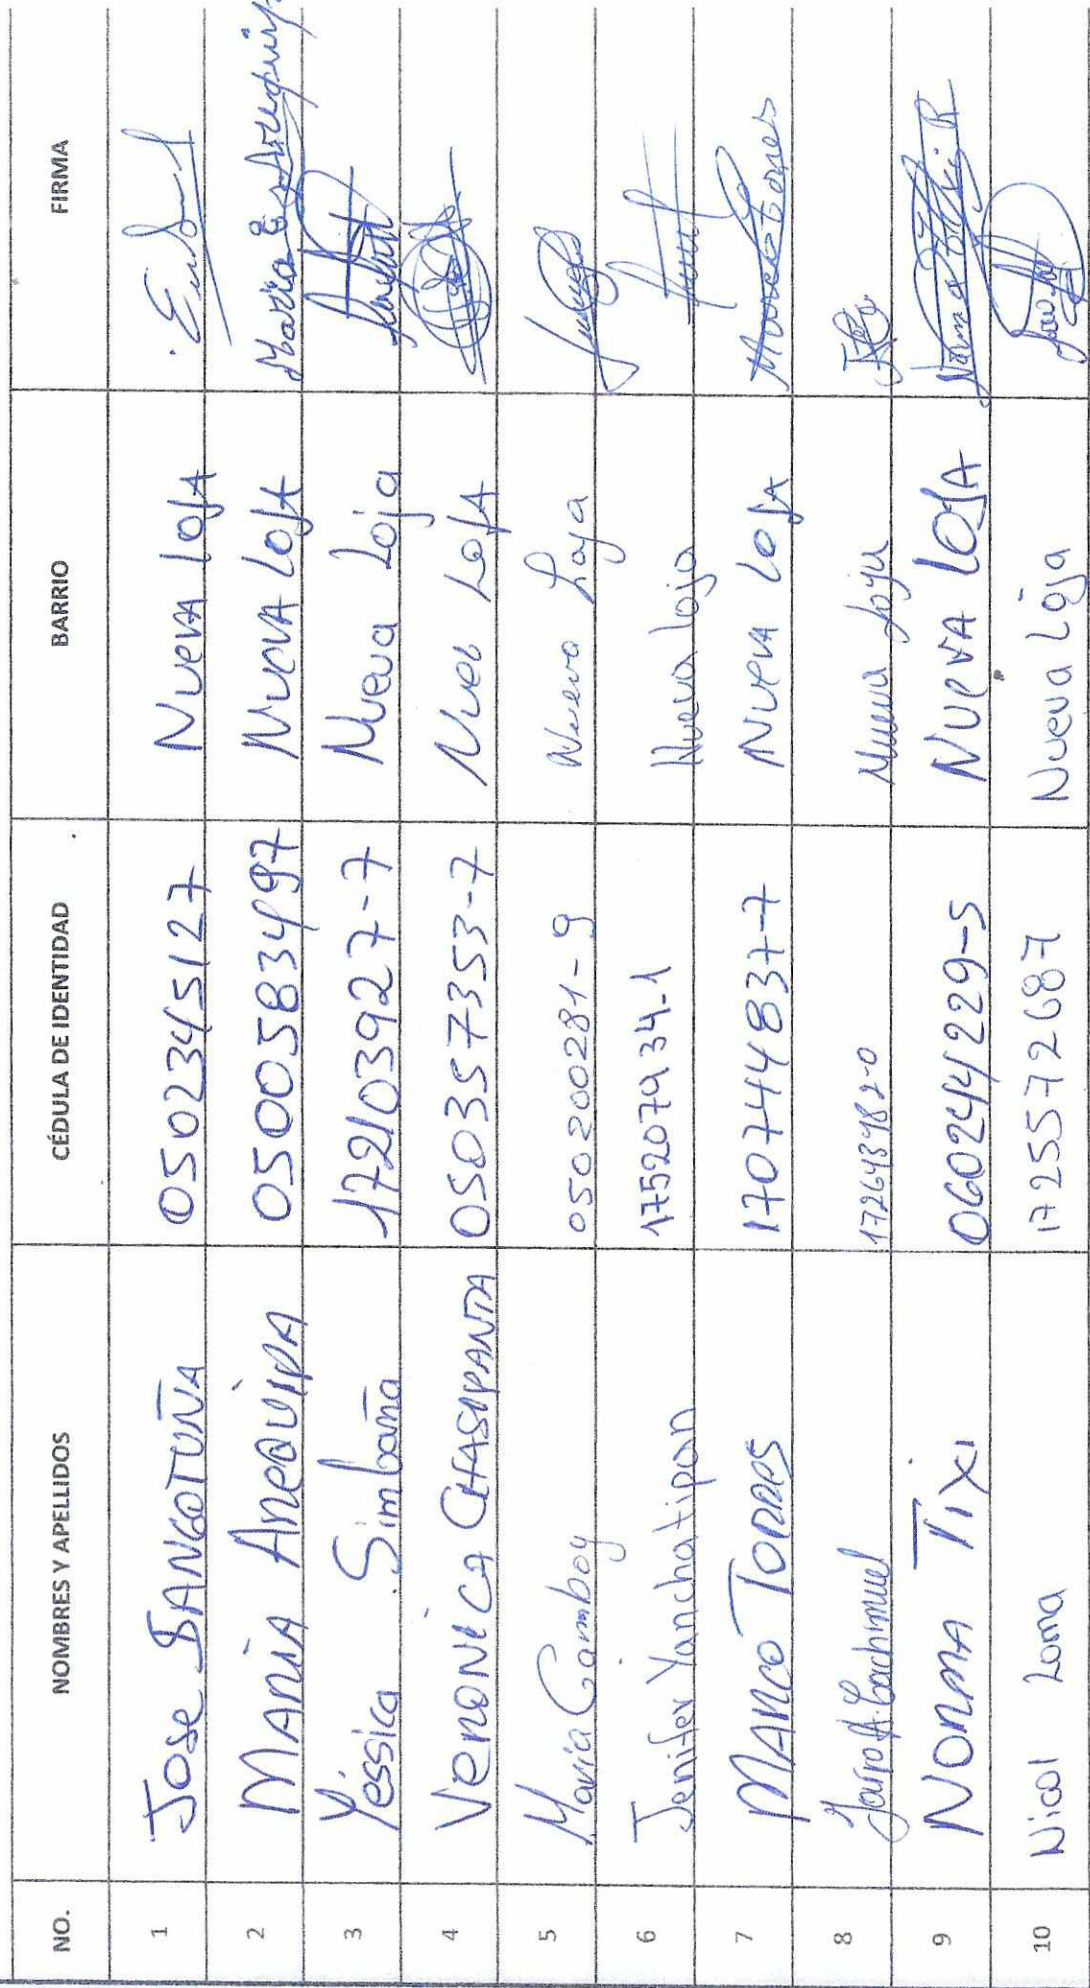 NO. NOMBRES Y APELLIDOS CÉDULA DE IDENTIDAD BARRIO FIRMA
1 Jose BANGOTUÑA 0502345127 NUEVA LOJA
2 MARIA AREQUIPA 0500583497 NUEVA LOJA Maria E Arequipa
3 Yéssica Simbaña 172103927-7 Nueva Loja
4 VERONICA CHASIPANTA 050357353-7 LOJA
5 Maria Gamboy 050200281-9 Nueva Loja
6 Jenifer Yanchatipan 175207934-1 Nueva Loja
7 MARCO TORRES 170744837-7 NUEVA LOJA Marco Torres
8 Jairo A. Cachimuel 172643982-0 Nueva Loja
9 NORMA TIXI 060244229-5 NUEVA LOJA
10 Nicol Loma 1725572687 Nueva Loja